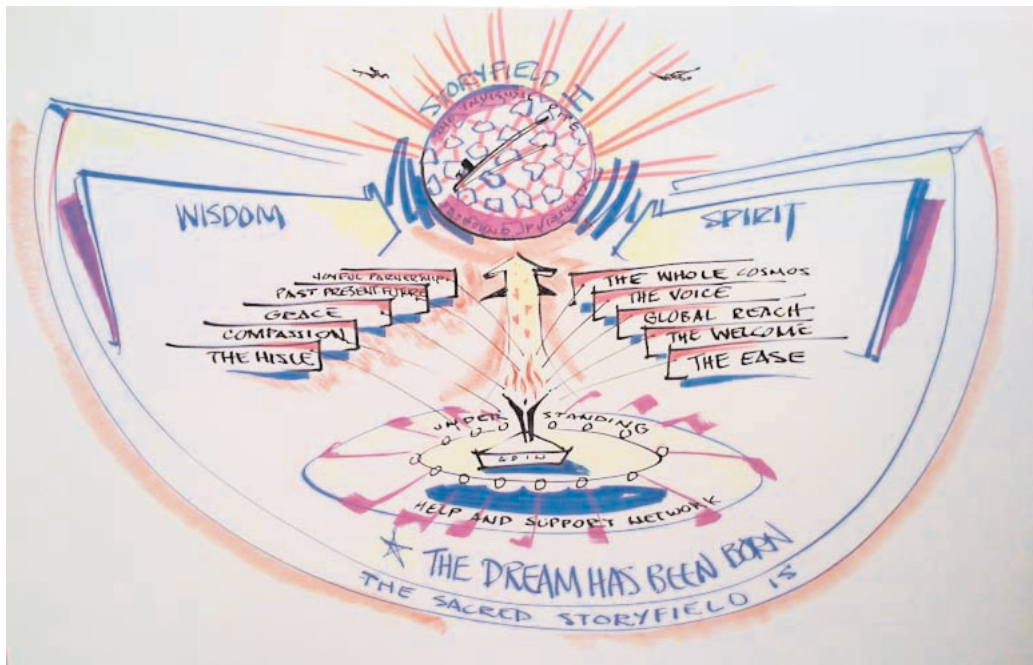 STORYFIELD II
WISDOM
SPIRIT
JOYFUL PARNERSHIP
PAST PRESENT FUTURE
GRACE
COMPASSION
THE HISLE
THE WHOLE COSMOS
THE VOICE
GLOBAL REACH
THE WELCOME
THE EASE
UNDER STANDING
HELP AND SUPPORT NETWORK
THE DREAM HAS BEEN BORN
THE SACRED STORYFIELD IS